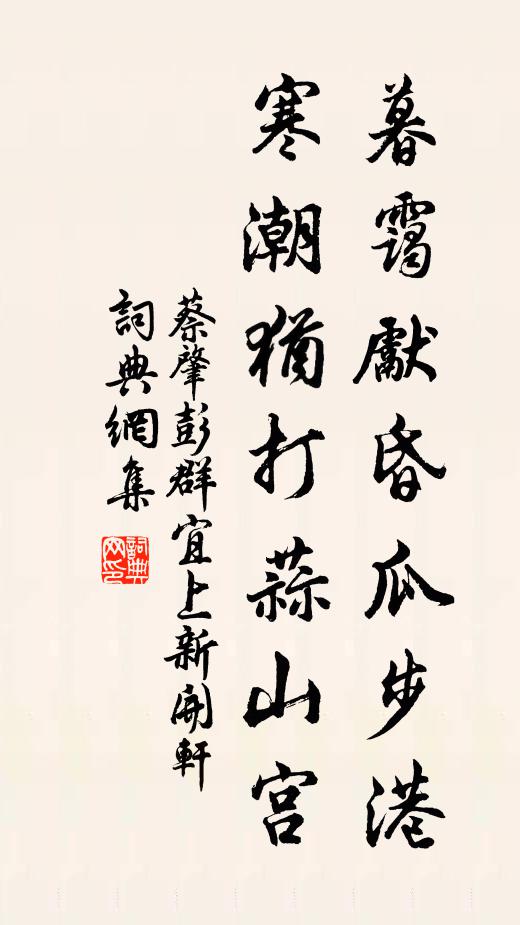 暮靄獻昏瓜步港
寒潮猶打蒜山宮
蔡肇彭群宜上新開軒
詞典網集
詞典網印